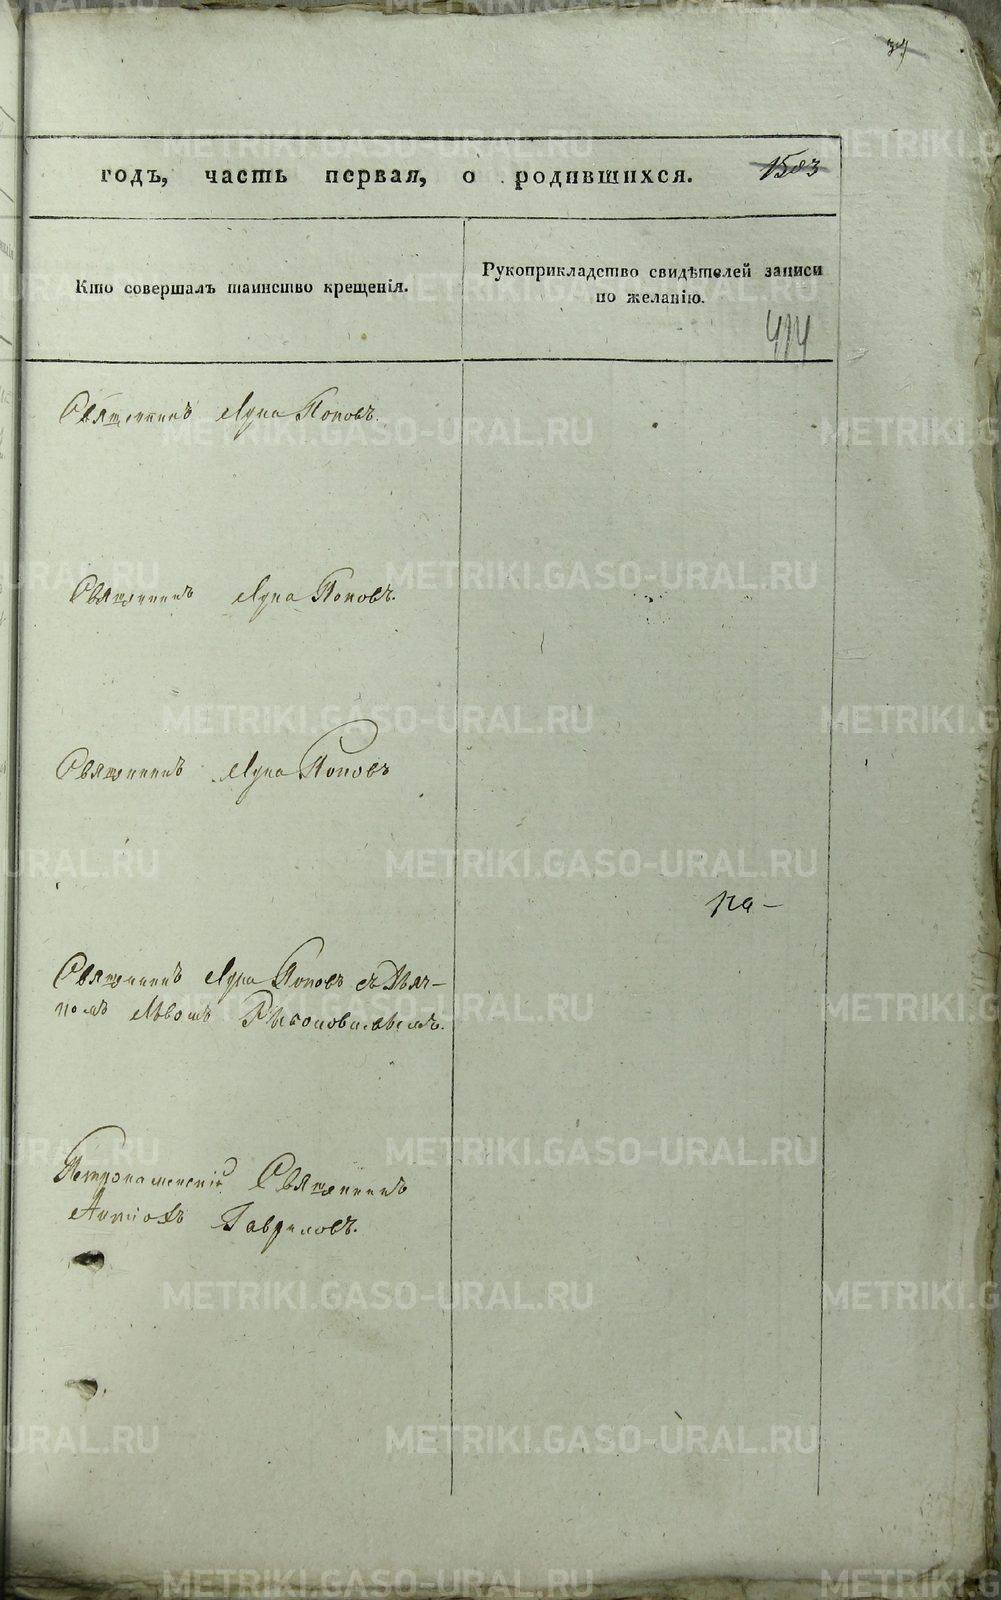 37
годъ, часть первая, о родившихся. 1583
Кто совершалъ таинство крещенія.
Рукоприкладство свидѣтелей записи по желанію.
414
Священникъ Лука Поповъ.
Священникъ Лука Поповъ.
Священникъ Лука Поповъ
на-
Священникъ Лука Поповъ съ Дьяч-
комъ Львомъ
Петрокаменскій Священникъ
Антіохъ Гавриловъ.
METRIKI.GASO-URAL.RU